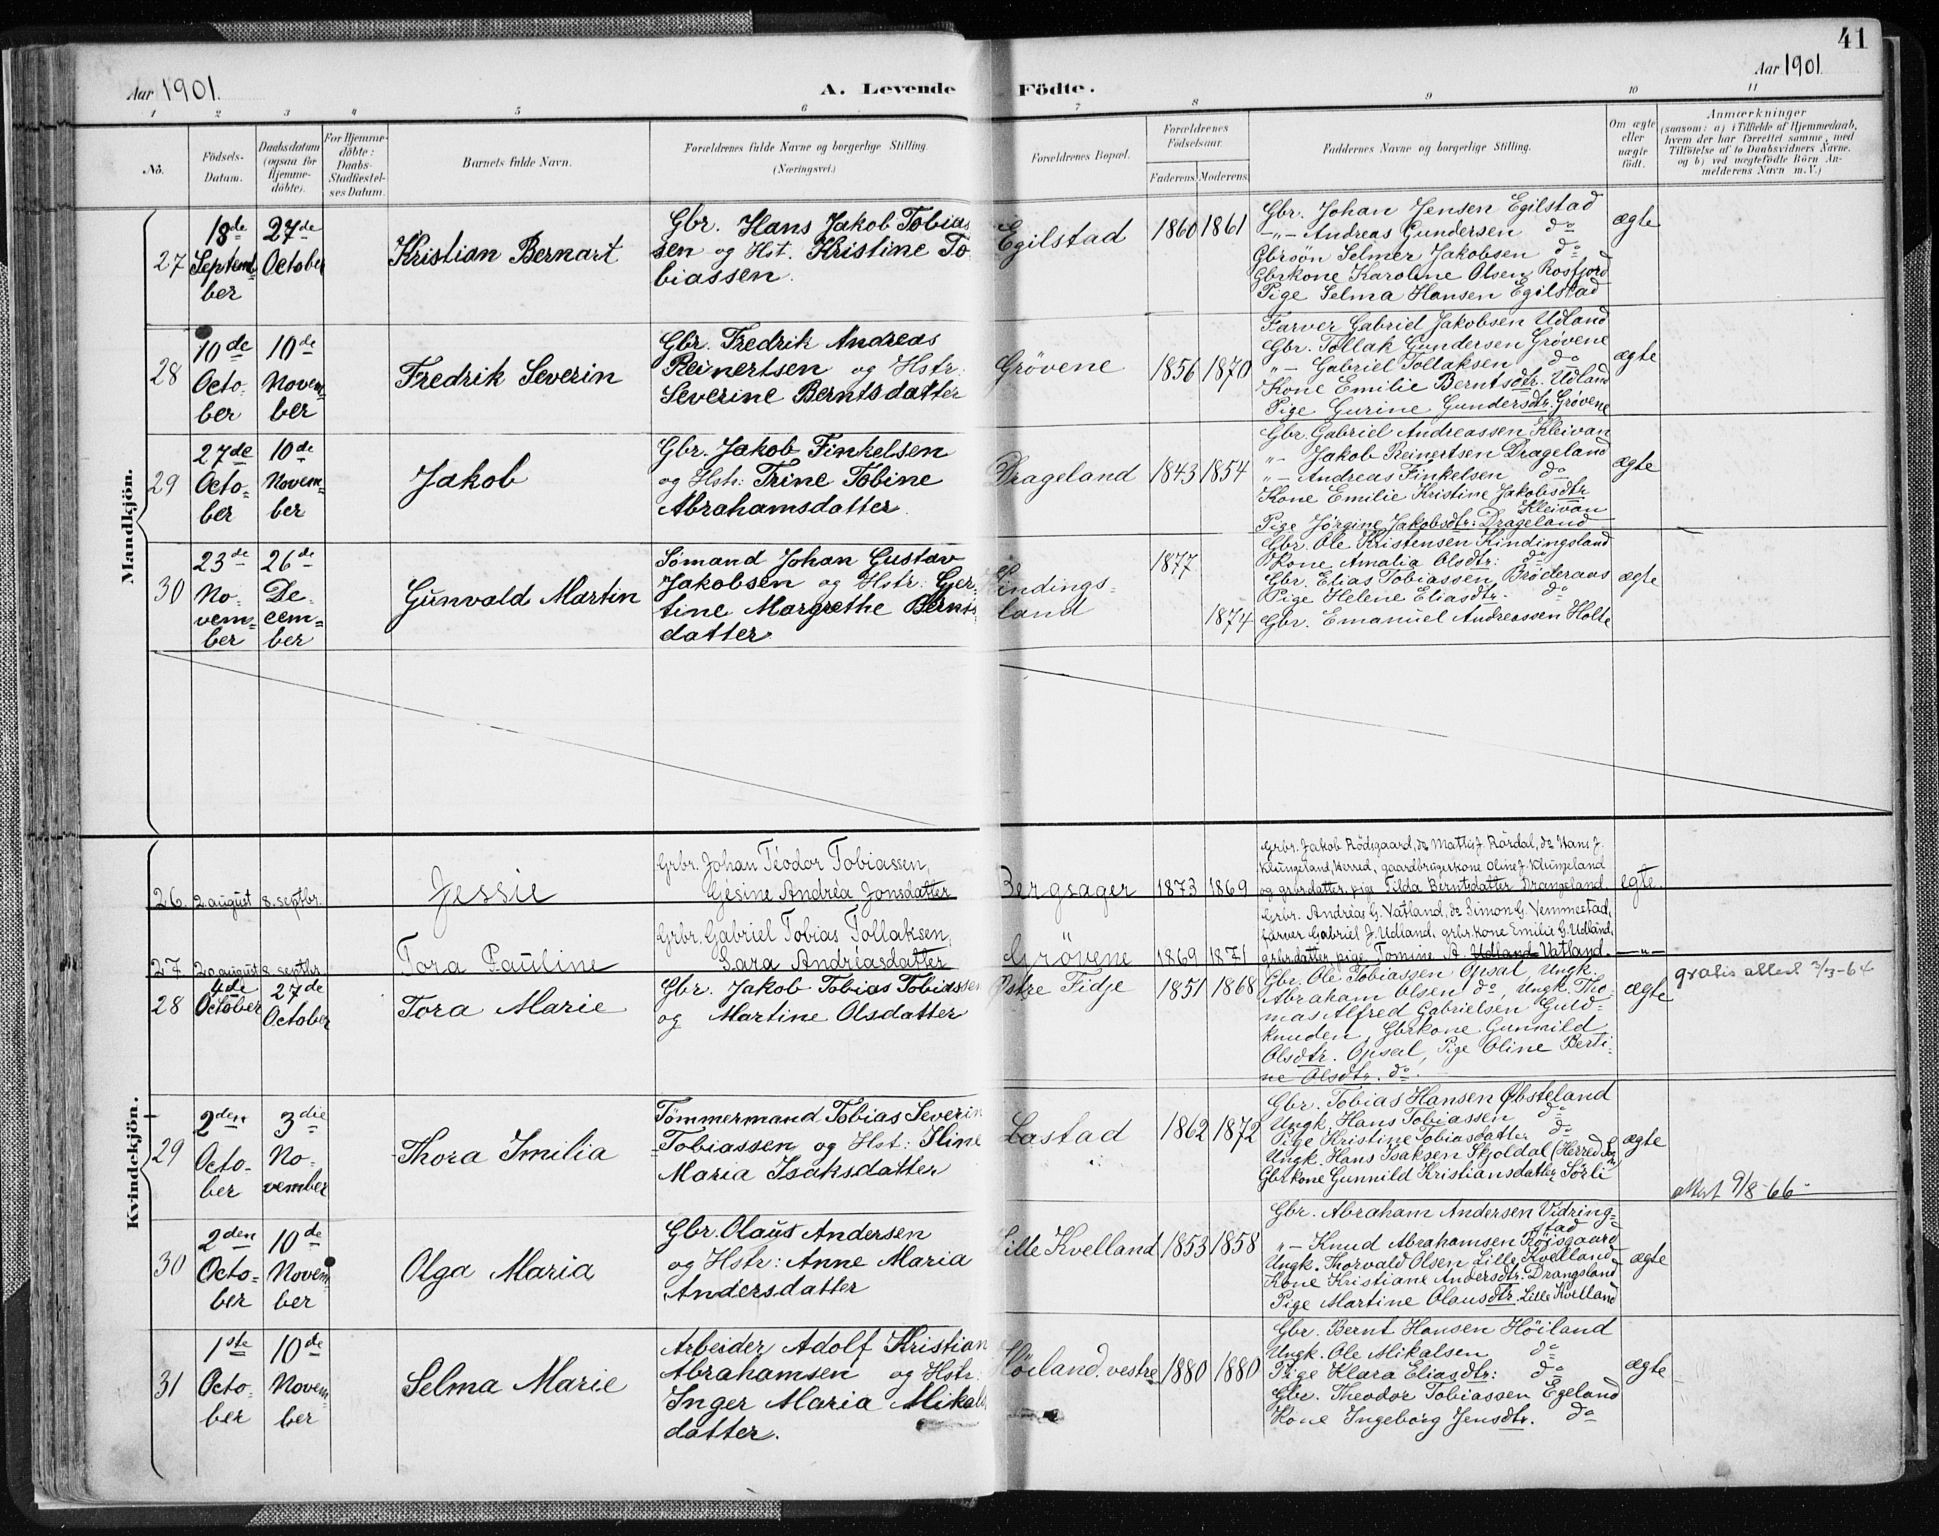 41
Aar 1901.
A. Levende Födte.
Aar 1901
1 2 3 4 5 6 7 8 9 10 11
No.
Födsels-
Datum.
Daabsdatum
(ogsaa for
Hjemme-
döbte).
For Hjemme-
döbte:
Daabs-
Stadfæstel-
ses Datum.
Barnets fulde Navn.
Forældrenes fulde Navne og borgerlige Stilling.
(Næringsvei.)
Forældrenes Bopæl.
Forældrenes
Födselsaar.
Faderens. Moderens.
Faddernes Navne og borgerlige Stilling.
Om ægte
eller
uægte
født.
Anmærkninger
(saasom: a) i Tilfælde af Hjemmedaab,
hvem der har forrettet samme, med
Tilföielse af to Daabsvidners Navne.
og b) ved uægtefödte Börn An-
melderens Navn m. V.)
Mandkjön.
27
18de
Septem-
ber
27de
October
Kristian Bernart
Gbr. Hans Jakob Tobias
sen og Hst. Kristine To
biassen.
Egilstad
1860 1861
Gbr. Johan Jensen Egilstad
-"- Andreas Gundersen do
Gbrsön Selmer Jakobsen do
Gbrkone Karoline Olsen Rosfjord
Pige Selma Hansen Egilstad
ægte
28
10de
Octo-
ber
10de
Novem-
ber
Fredrik Severin
Gbr. Fredrik Andreas
Reinertsen og Hstr:
Severine Berntsdatter
Grövene
1856 1870
Farver Gabriel Jakobsen Udland
Gbr. Tollak Gundersen Grövene
"- Gabriel Tollaksen do
Kone Emilie Berntsdtr. Udland
Pige Gurine Gundersdtr. Grövene
ægte
29
27de
Octo-
ber
10de
Novem-
ber
Jakob
Gbr. Jakob Finkelsen
og Hstr: Trine Tobine
Abrahamsdatter.
Drageland
1843 1854
Gbr. Gabriel Andreassen Kleivan
"- Jakob Reinertsen Drageland
"- Andreas Finkelsen do
Kone Emilie Kristine Jakobsdtr
Kleivan
Pige Jörgine Jakobsdtr: Drageland
ægte
30
23de
No-
vem-
ber
26de
De-
cem-
ber
Gunvald Martin
Sömand Johan Gustav
Jakobsen og Hstr: Gjer-
tine Margrethe Bernts-
datter
Kindings-
land
1877
1874
Gbr. Ole Kristensen Kindingsland
Kone Amalia Olsdtr: do
Gbr. Elias Tobiassen Bröderaas
Pige Helene Eliasdtr. do
Gbr. Emanuel Andreassen Holte
ægte
Kvindekjön.
26. 2 august 8. septbr.
Jessie
Grbr. Johan Téodor Tobiassen,
Gésine Andréa Jonsdatter
Bergsager
1873 1869
Grbr. Jakob Rödsgaard, do Mattis J. Rördal, do Hans J.
Klungeland, Herred, gaardbrugerkone Oline J. Klungeland
og grbrdatter, pige Tilda Berntsdatter Drangeland
egte.
27 20 august 8. septbr.
Tora Pauline
Grbr. Gabriel Tobias Tollaksen,
Sara Andréasdatter
Grövene
1869 1871
Grbr. Andréas G. Vatland, do Simon G. Vemmestad,
farver Gabriel J. Udland, grbr.kone Emilie G. Udland,
grbrdatter, pige Tomine A. Udland Vatland.
-"-
28
4de
October
27de
October
Tora Marie
Gbr. Jakob Tobias Tobiassen
og Martine Olsdatter
Östre Fidje
1851 1868
Gbr. Ole Tobiassen Opsal, Ungk.
Abraham Olsen do, Ungk. Tho-
mas Alfred Gabrielsen Guld-
knuden, Gbrkone Gunnild
Olsdtr. Opsal, Pige Oline Berti-
ne Olsdtr. do.
ægte
gratis attest 2/3-64
29
2den
Octo-
ber
3die
No-
vember
Thora Imilia
Tömmermand Tobias Severin
Tobiassen og Hst: Iline
Maria Isaksdatter
Lastad
1862 1872
Gbr. Tobias Hansen Öbsteland
Ungk. Hans Tobiassen do
Pige Kristine Tobiasdatter do
Ungk. Hans Isaksen Skjoldal (Herred S.
Gbrkone Gunnild Kristiansdatter Sörli
ægte
attest 9/8-66-
30
2den
Octo-
ber
10de
Novem-
ber
Olga Maria
Gbr. Olaus Andersen
og Hstr: Anne Maria
Andersdatter
Lille Kvelland
1853 1858
Gbr. Abraham Andersen Vidring-
stad
"- Knud Abrahamsen Röisgaard
Ungk. Thorvald Olsen Lille Kvelland
Kone Kristiane Andersdtr. Drangsland
Pige Martine Olausdtr. Lille Kvelland
ægte
31
1ste
Octo-
ber
10de
Novem-
ber
Selma Marie
Arbeider Adolf Kristian
Abrahamsen og Hstr:
Inger Maria Mikals
datter.
Höiland. vestre
1880 1880
Gbr. Bernt Hansen Höiland
Ungk. Ole Mikalsen do
Pige Klara Eliasdtr: do
Gbr. Theodor Tobiassen Egeland
Kone Ingeborg Jensdtr. do
ægte